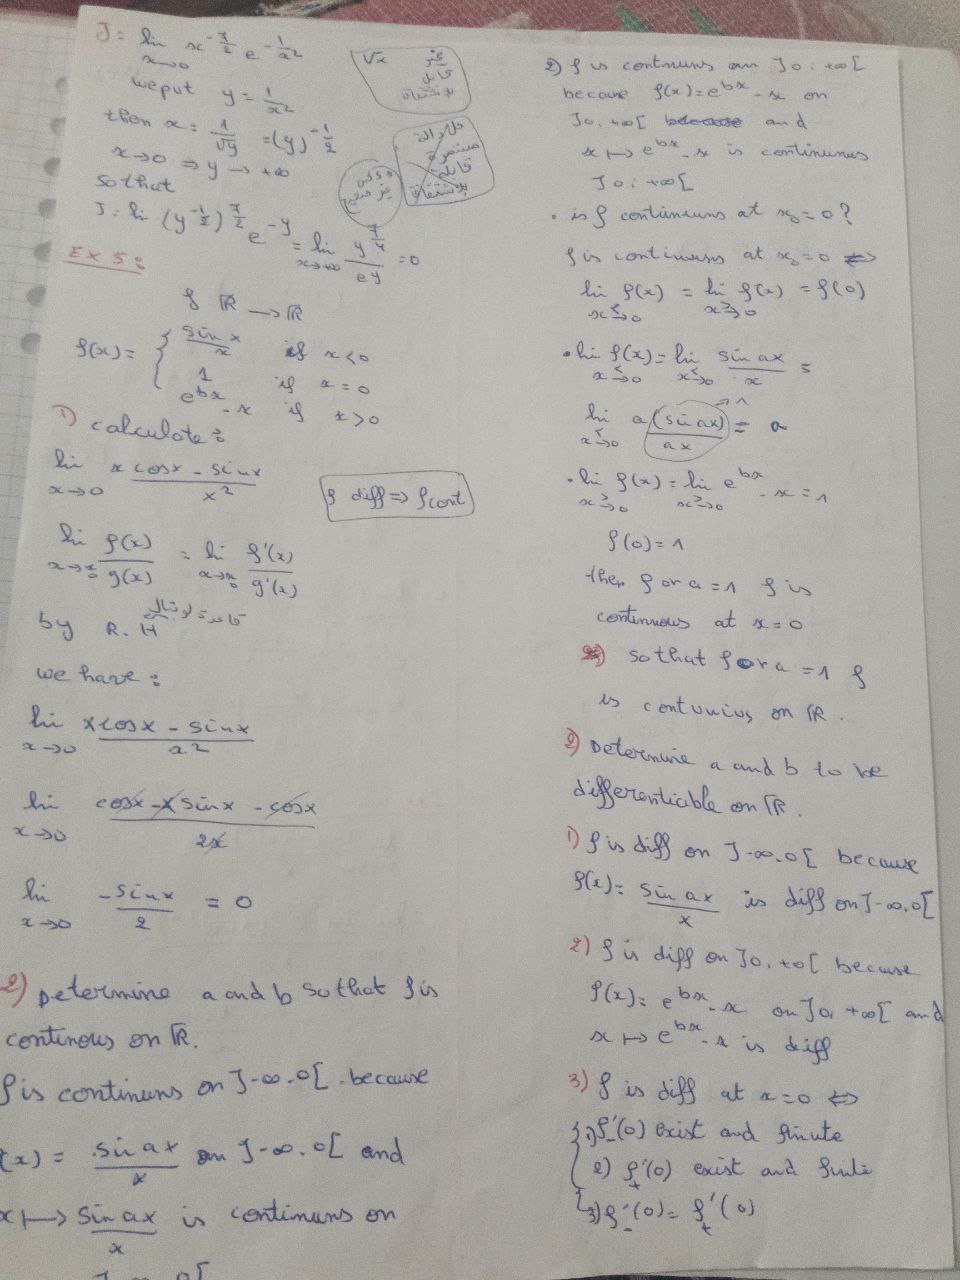 J = lim x→0 x^(-7/2) e^(-1/x²)
we put y = 1/x²
then x = 1/√y = (y)^(-1/2)
x→0 ⇒ y → +∞
so that
J = lim (y^(-1/2))^(7/2) e^(-y) = lim x→+∞ y^(7/4)/e^y = 0
√x غير
قابل
للإشتقاق
كل دالة
مستمرة
قابلة
للإشتقاق
غير صحيح
Ex 5:
f ℝ → ℝ
f(x) = { sin x/x if x<0
1 if x = 0
e^(bx) - x if x>0
1) calculate:
lim x→0 (x cos x - sin x)/x²
f diff ⇒ f cont
lim f(x)/g(x) = lim f'(x)/g'(x)
by R.H قاعدة لوبيتال
we have:
lim x→0 (x cos x - sin x)/x²
lim x→0 (cos x - x sin x - cos x)/2x
lim x→0 -sin x/2 = 0
2) Determine a and b so that f is
continous on ℝ.
f is continuns on ]-∞.0[ .because
(x) = sin ax/x on ]-∞.0[ and
x ↦ sin ax/x is continuns on
2) f is continuns on ]0; +∞[
because f(x) = e^(bx) - x on
]0, +∞[ because and
x ↦ e^(bx) - x is continuns
]0; +∞[
. is f continuns at x₀ = 0?
f is continuns at x₀ = 0 ⇔
lim x<→0 f(x) = lim x>→0 f(x) = f(0)
• lim x<→0 f(x) = lim x<→0 sin ax/x =
lim x<→0 a (sin ax)/ax = a → 1
• lim x>→0 f(x) = lim x>→0 e^(bx) - x = 1
f(0) = 1
then for a = 1 f is
continuous at x = 0
so that for a = 1 f
is contunius on ℝ.
2) Determine a and b to be
differentiable on ℝ.
1) f is diff on ]-∞.0[ because
f(x) = sin ax/x is diff on ]-∞.0[
2) f is diff on ]0, +∞[ because
f(x) = e^(bx) - x on ]0, +∞[ and
x ↦ e^(bx) - x is diff
3) f is diff at x = 0 ⇔
1) f'₋(0) exist and finute
2) f'₊(0) exist and finite
3) f'₋(0) = f'₊(0)